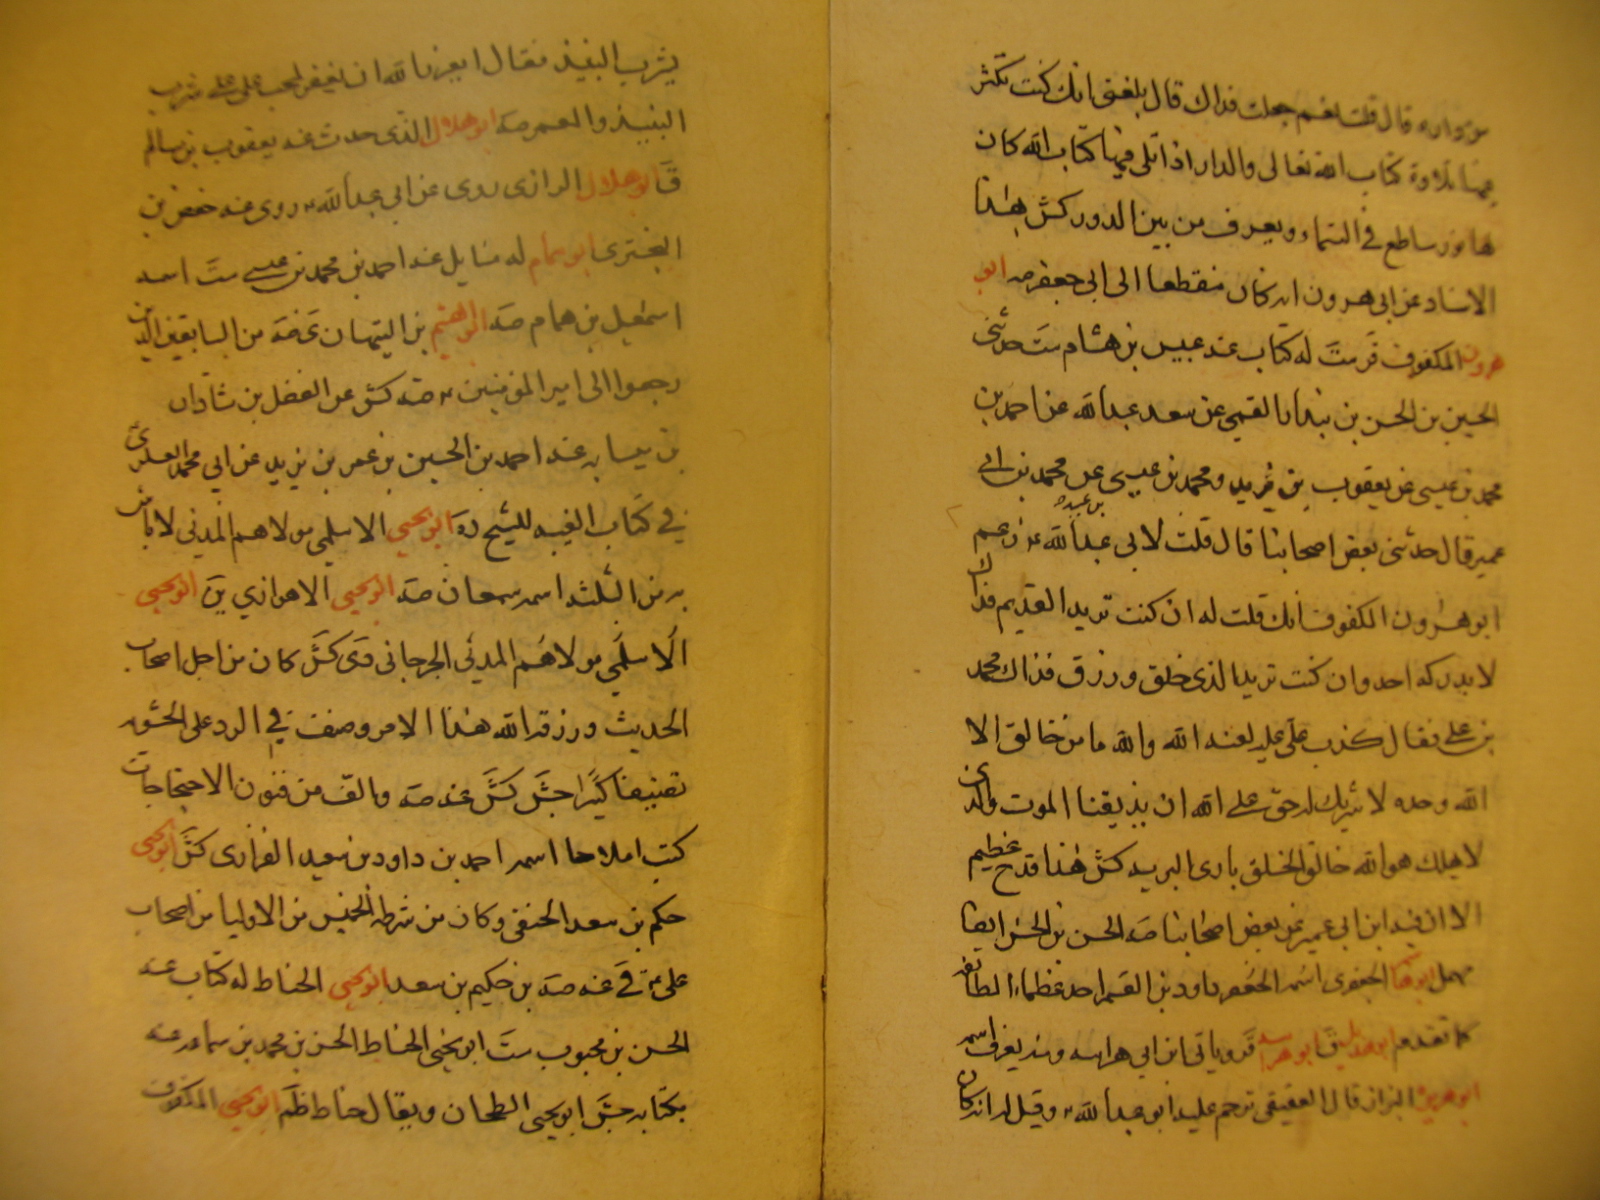 من داره قال قلت نعم جعلت فداك قال بلغنى انك كنت تكثر
فيها تلاوة كتاب الله تعالى والدار اذا تلى فيها كتاب الله كان
لها نور ساطع فى السماء ويعرف من بين الدور كش بهذا
الاسناد عن ابى هرون انه كان منقطعا الى ابى جعفر صه ابو
هرون المكفوف قر ست له كتاب عنه عبيس بن هشام ست حدثنى
الحسين بن الحسن بن بندار القمى عن سعد عبد الله عن احمد بن
محمد بن عيسى عن يعقوب بن يزيد ومحمد بن عيسى عن محمد بن ابى
بن عبده
عمير قال حدثنى بعض اصحابنا قال قلت لابى عبد الله ع زعم
ابو هرون المكفوف انك قلت له ان كنت تريد القديم فذاك
لا يدركه احد وان كنت تريد الذى خلق ورزق فذاك محمد
بن على فقال كذب على عليه لعنة الله والله ما من خالق الا
الله وحده لا شريك له حق على الله ان يذيقنا الموت والذى
لا يهلك هو الله خالق الخلق بارى البريه كش هذا قدح عظيم
الا ان فيه ابن ابى عمير عن بعض اصحابنا صه الحسن بن الحسن ايضا
مهمل ابو هاشم الجعفرى اسمه داود بن القسم احد عظماء الطائفة
كما تقدم ابو هراسه قد وياتى ابن ابى هراسه ومنه يعرف اسمه
ابو هريرة البزاز قال العقيقى ترحم عليه ابو عبد الله ع وقيل له انه كان
يشرب النبيذ فقال ايعز على الله ان يغفر لمحب على على شرب
النبيذ والخمر صه ابو هلال الذى حدث عنه يعقوب بن سالم
ق ابو هلال الرازى روى عن ابى عبد الله ع روى عنه حفص بن
البخترى ابو همام له مسايل عنه احمد بن محمد بن عيسى ست اسمه
اسمعيل بن همام صه ابو الهيثم بن التيهان من السابقين الذين
رجعوا الى امير المؤمنين ع صه كش عن الفضل بن شاذان
عنه احمد بن الحسين بن عمر بن يزيد عن ابى محمد العسكرى
فى كتاب الغيبه للشيخ ره ابو يحيى الاسلمى مولاهم المدنى لا باس
به من الثلثه اسمه سمعان صه ابو يحيى الاهوازى ين ابو يحيى
الاسلمى مولاهم المدنى الجرجانى كش كان من اجل اصحاب
الحديث ورزقه الله هذا الامر وصنف فى الرد على الحشويه
تصنيفا كثيرا جش كش عنه صه والف من فنون الاحتجاجات
كتبا ملاحا اسمه احمد بن داود بن سعيد الفزارى كش ابو يحيى
حكيم بن سعد الحنفى وكان من شرطه الخميس من الاوليا من اصحاب
على ع قى عنه صه بن حكيم بن سعد ابو يحيى الحناط له كتاب عنه
الحسن بن محبوب ست ابو يحيى الحناط الحسن بن محمد بن سماعه عنه
بكتابه جش ابو يحيى الطحان ويقال حناط ظم ابو يحيى المكفوف